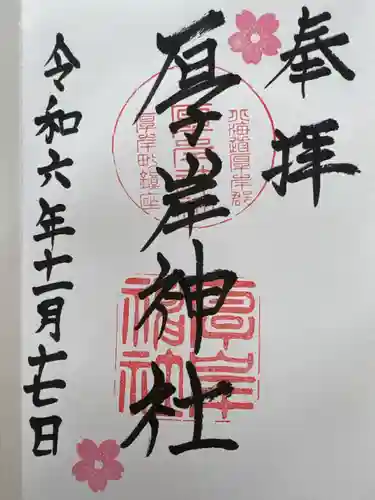 奉拝
厚岸神社
令和六年十一月十七日
北海道厚岸郡
厚岸町鎮座
厚岸
神社